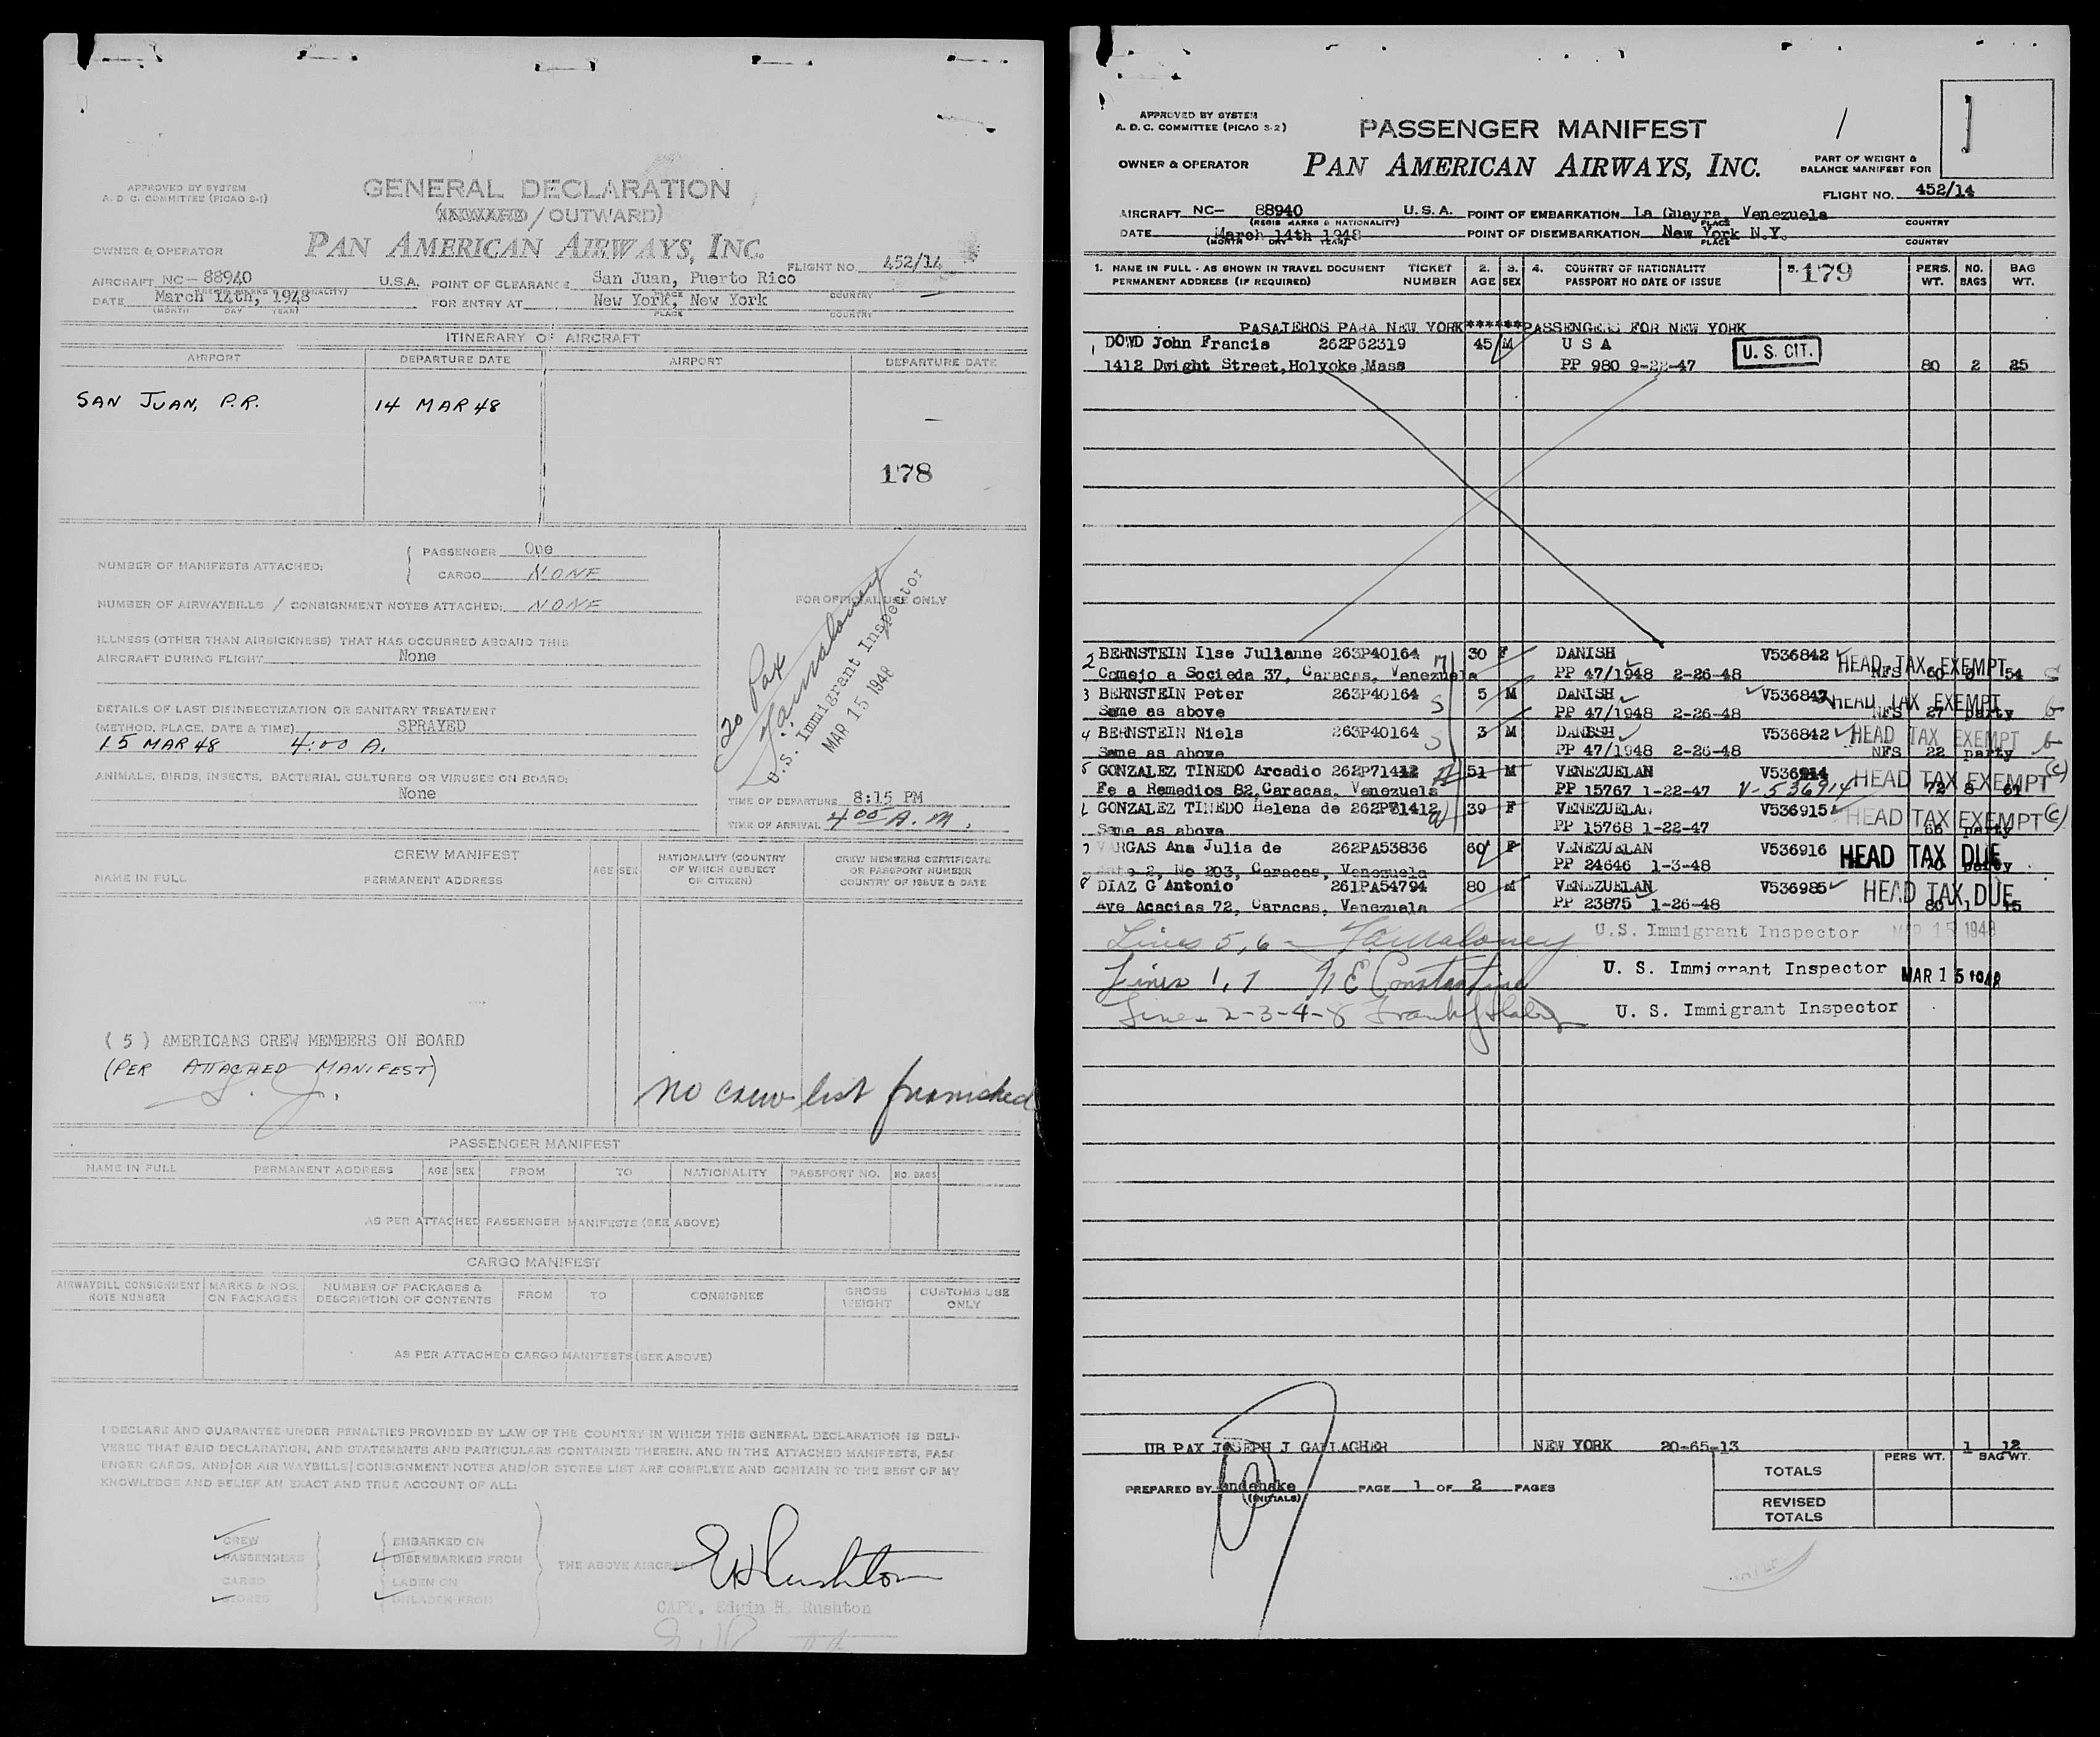 APPROVED BY SYSTEM
A. D. C. COMMITTEE (PICAO S-1)
GENERAL DECLARATION
(INWARD / OUTWARD)
OWNER & OPERATOR
PAN AMERICAN AIRWAYS, INC.
FLIGHT NO. 452/14
AIRCRAFT NC- 88940 U.S.A. POINT OF CLEARANCE San Juan, Puerto Rico
DATE March 14th, 1948 FOR ENTRY AT New York, New York
(MONTH DAY YEAR) PLACE COUNTRY
ITINERARY OF AIRCRAFT
AIRPORT DEPARTURE DATE AIRPORT DEPARTURE DATE
SAN JUAN, P.R. 14 MAR 48
178
NUMBER OF MANIFESTS ATTACHED: PASSENGER One
CARGO NONE
NUMBER OF AIRWAYBILLS / CONSIGNMENT NOTES ATTACHED: NONE
ILLNESS (OTHER THAN AIRSICKNESS) THAT HAS OCCURRED ABOARD THIS
AIRCRAFT DURING FLIGHT None
DETAILS OF LAST DISINSECTIZATION OR SANITARY TREATMENT
(METHOD, PLACE, DATE & TIME) SPRAYED
15 MAR 48 4:00 A.
ANIMALS, BIRDS, INSECTS, BACTERIAL CULTURES OR VIRUSES ON BOARD:
None
FOR OFFICIAL USE ONLY
20 Pax
U.S. Immigrant Inspector
MAR 15 1948
TIME OF DEPARTURE 8:15 PM
TIME OF ARRIVAL 4 00 A.M.
CREW MANIFEST
NAME IN FULL PERMANENT ADDRESS AGE SEX NATIONALITY (COUNTRY OF WHICH SUBJECT OR CITIZEN) CREW MEMBERS CERTIFICATE OR PASSPORT NUMBER COUNTRY OF ISSUE & DATE
(5) AMERICANS CREW MEMBERS ON BOARD
(PER ATTACHED MANIFEST)
no crew list furnished
PASSENGER MANIFEST
NAME IN FULL PERMANENT ADDRESS AGE SEX FROM TO NATIONALITY PASSPORT NO. NO. BAGS
AS PER ATTACHED PASSENGER MANIFESTS (SEE ABOVE)
CARGO MANIFEST
AIRWAYBILL CONSIGNMENT NOTE NUMBER MARKS & NOS. ON PACKAGES NUMBER OF PACKAGES & DESCRIPTION OF CONTENTS FROM TO CONSIGNEE GROSS WEIGHT CUSTOMS USE ONLY
AS PER ATTACHED CARGO MANIFESTS (SEE ABOVE)
I DECLARE AND GUARANTEE UNDER PENALTIES PROVIDED BY LAW OF THE COUNTRY IN WHICH THIS GENERAL DECLARATION IS DELI-
VERED THAT SAID DECLARATION, AND STATEMENTS AND PARTICULARS CONTAINED THEREIN, AND IN THE ATTACHED MANIFESTS, PASS-
ENGER CARDS, AND/OR AIR WAYBILLS/CONSIGNMENT NOTES AND/OR STORES LIST ARE COMPLETE AND CONTAIN TO THE BEST OF MY
KNOWLEDGE AND BELIEF AN EXACT AND TRUE ACCOUNT OF ALL:
CREW EMBARKED ON
PASSENGERS DISEMBARKED FROM
CARGO LADEN ON
STORES UNLADEN FROM
THE ABOVE AIRCRAFT
E H Rushton
CAPT. Edwin H. Rushton
APPROVED BY SYSTEM
A. D. C. COMMITTEE (PICAO S-2)
PASSENGER MANIFEST
1
1
OWNER & OPERATOR
PAN AMERICAN AIRWAYS, INC.
PART OF WEIGHT & BALANCE MANIFEST FOR
FLIGHT NO. 452/14
AIRCRAFT NC- 88940 U.S.A. POINT OF EMBARKATION La Guayra, Venezuela
(REGIS MARKS & NATIONALITY) PLACE COUNTRY
DATE March 14th 1948 POINT OF DISEMBARKATION New York N.Y.
(MONTH DAY YEAR) PLACE COUNTRY
1. NAME IN FULL - AS SHOWN IN TRAVEL DOCUMENT TICKET 2. 3. 4. COUNTRY OF NATIONALITY 5. 179 PERS. NO. BAG
PERMANENT ADDRESS (IF REQUIRED) NUMBER AGE SEX PASSPORT NO DATE OF ISSUE WT. BAGS WT.
PASAJEROS PARA NEW YORK******PASSENGERS FOR NEW YORK
1 DOWD John Francis 262P62319 45 M U S A U. S. CIT.
1412 Dwight Street, Holyoke, Mass PP 980 9-22-47 80 2 25
2 BERNSTEIN Ilse Julianne 263P40164 30 F DANISH V536842 HEAD TAX EXEMPT
Camejo a Socieda 37, Caracas, Venezuela PP 47/1948 2-26-48 NFS 60 54
3 BERNSTEIN Peter 263P40164 5 M DANISH V536843 HEAD TAX EXEMPT
Same as above PP 47/1948 2-26-48 NFS 27 party
4 BERNSTEIN Niels 263P40164 3 M DANISH V536842 HEAD TAX EXEMPT
Same as above PP 47/1948 2-26-48 NFS 22 party
5 GONZALEZ TINEDO Arcadio 262P71412 51 M VENEZUELAN V536914 HEAD TAX EXEMPT (C)
Fe a Remedios 82, Caracas, Venezuela PP 15767 1-22-47 V-536914 72 8 61
GONZALEZ TINEDO Helena de 262P71412 39 F VENEZUELAN V536915 HEAD TAX EXEMPT (C)
Same as above PP 15768 1-22-47 party
7 VARGAS Ana Julia de 262PA53836 60 F VENEZUELAN V536916 HEAD TAX DUE
2, No 203, Caracas, Venezuela PP 24646 1-3-48 party
8 DIAZ G Antonio 261PA54794 80 M VENEZUELAN V536985 HEAD TAX DUE
Ave Acacias 72, Caracas, Venezuela PP 23875 1-26-48 80 1 15
Lines 5, 6 - U.S. Immigrant Inspector MAR 15 1948
Lines 1, 7 N E Constantine U. S. Immigrant Inspector MAR 15 1948
Lines 2-3-4-8 U. S. Immigrant Inspector
UB PAX JOSEPH J GALLAGHER NEW YORK 20-65-13 1 12
PREPARED BY (INITIALS) PAGE 1 OF 2 PAGES
PERS WT. BAG WT.
TOTALS
REVISED TOTALS